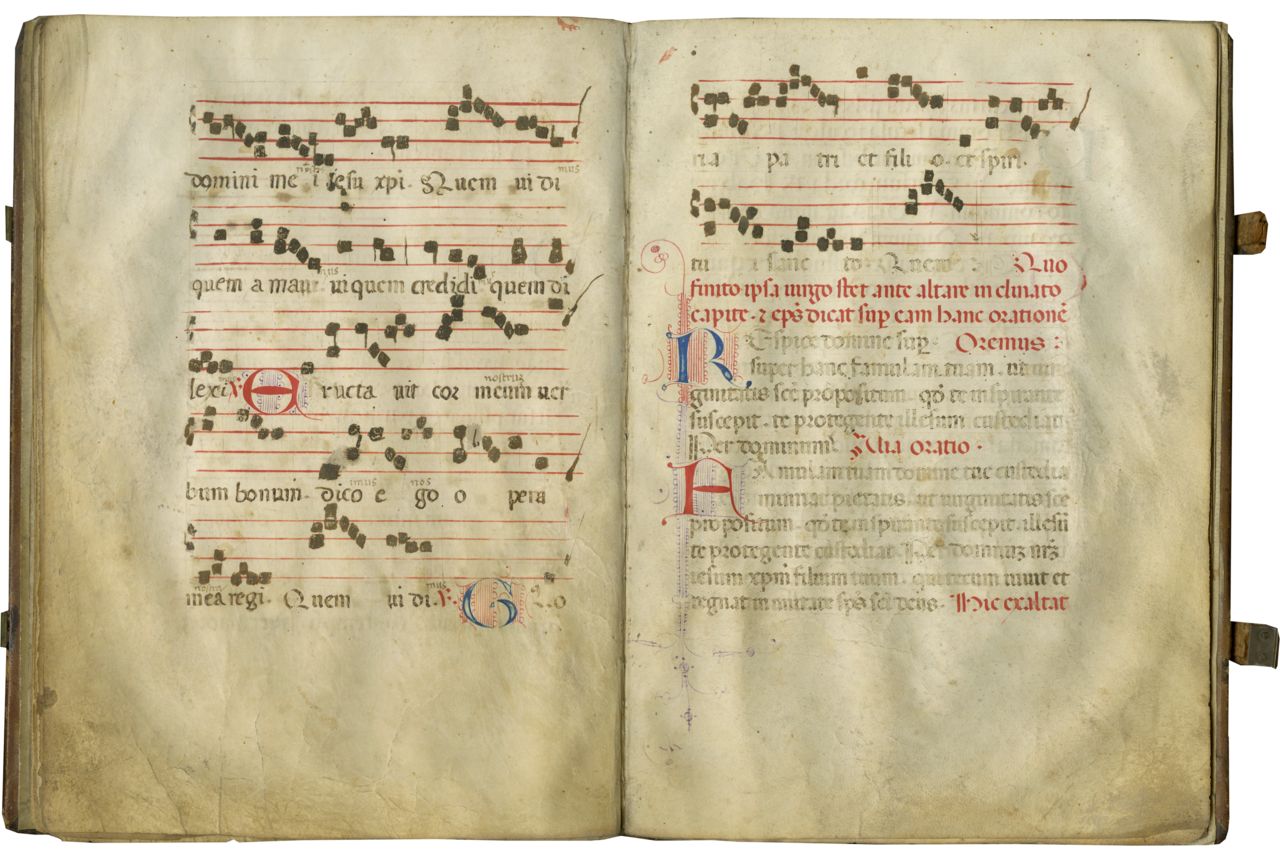 nostri
domini me i Iesu xpi. Quem ui di
mus
quem a maui in quem credidi quem di
mus
lexi. ℣. E ructa uit cor meum uer
nostrum
bum bonum. dico e go o pera
imus nos
mea regi. Quem ui di. ℣. G lo
nostri mus
ria pa tri et fili o. et spiri.
tu i sanc to. Quem Quo
finito ipsa uirgo stet ante altare inclinato
capite. ⁊ eps dicat sup eam hanc orationē
REspice domine sup. Oremus:
super hanc famulam tuam. ut uir
ginitatis scē propositum. qđ te inspirante
suscepit. te protegente illesum custodiat.
Per dominum. Alia oratio.
FAmulam tuam domine tue custodia
muniat pietatis. ut uirginitatis scē
propositum. qđ te inspirante suscepit. illesū
te protegente custodiat. Per dominū nr̄m
iesum xpm filium tuum. qui tecum uiuit et
regnat in unitate sp̄s scī deus. Hic exaltat